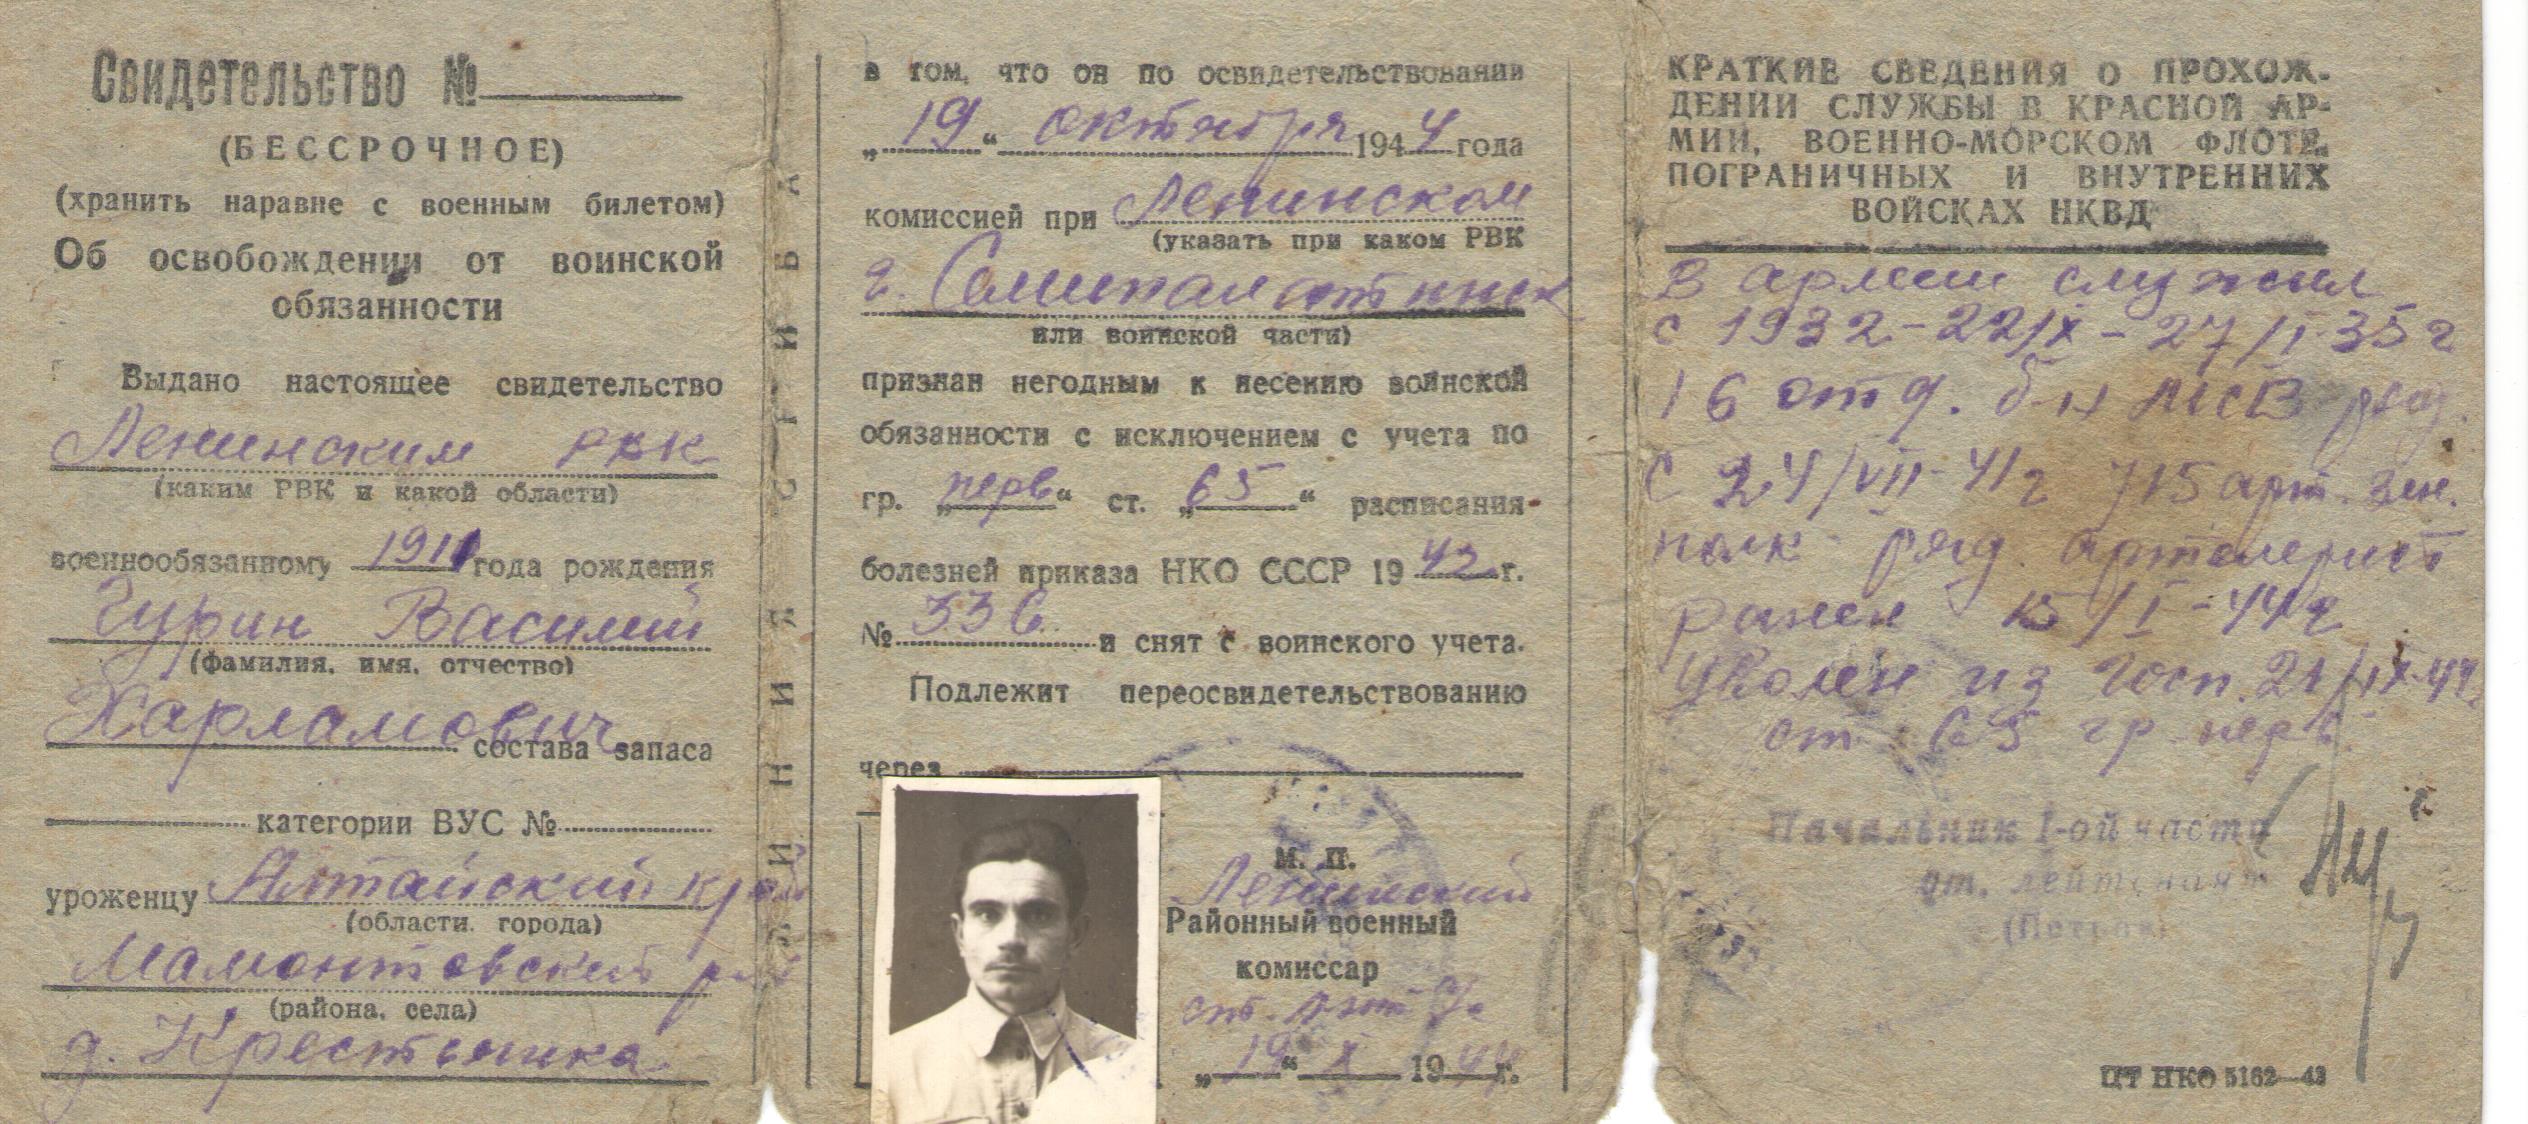 Свидетельство №
(БЕССРОЧНОЕ)
(хранить наравне с военным билетом)
Об освобождении от воинской
обязанности
Выдано настоящее свидетельство
Ленинским РВК
(каким РВК и какой области)
военнообязанному 1911 года рождения
Гурин Василий
(фамилия, имя, отчество)
Харламович состава запаса
категории ВУС №
уроженцу Алтайский край
(области, города)
Мамонтовский
(района, села)
д. Крестьянка
ЛИНИЯ СГИБА
в том, что он по освидетельствовании
„19“ октября 1944 года
комиссией при Ленинском
(указать при каком РВК
г. Семипалатинск
или воинской части)
признан негодным к несению воинской
обязанности с исключением с учета по
гр. „перв“ ст. „65“ расписания
болезней приказа НКО СССР 1942 г.
№ 336 и снят с воинского учета.
Подлежит переосвидетельствованию
через
М. П.
Ленинский
Районный военный
комиссар
„19“ X 1944 г.
КРАТКИЕ СВЕДЕНИЯ О ПРОХОЖ-
ДЕНИИ СЛУЖБЫ В КРАСНОЙ АР-
МИИ, ВОЕННО-МОРСКОМ ФЛОТЕ,
ПОГРАНИЧНЫХ И ВНУТРЕННИХ
ВОЙСКАХ НКВД
В армии служил
с 1932-22/X-27/II-35 г
16 отд. б-н МСВ ряд.
С 24/VII-41 г 715 арт. зен.
полк ряд. артелерист
ранен 15/I-44 г
Уволен из госп. 21/IX-44
ст 65 гр. перв.
Начальник I-ой части
ст. лейтенант
ЦТ НКО 5162—43